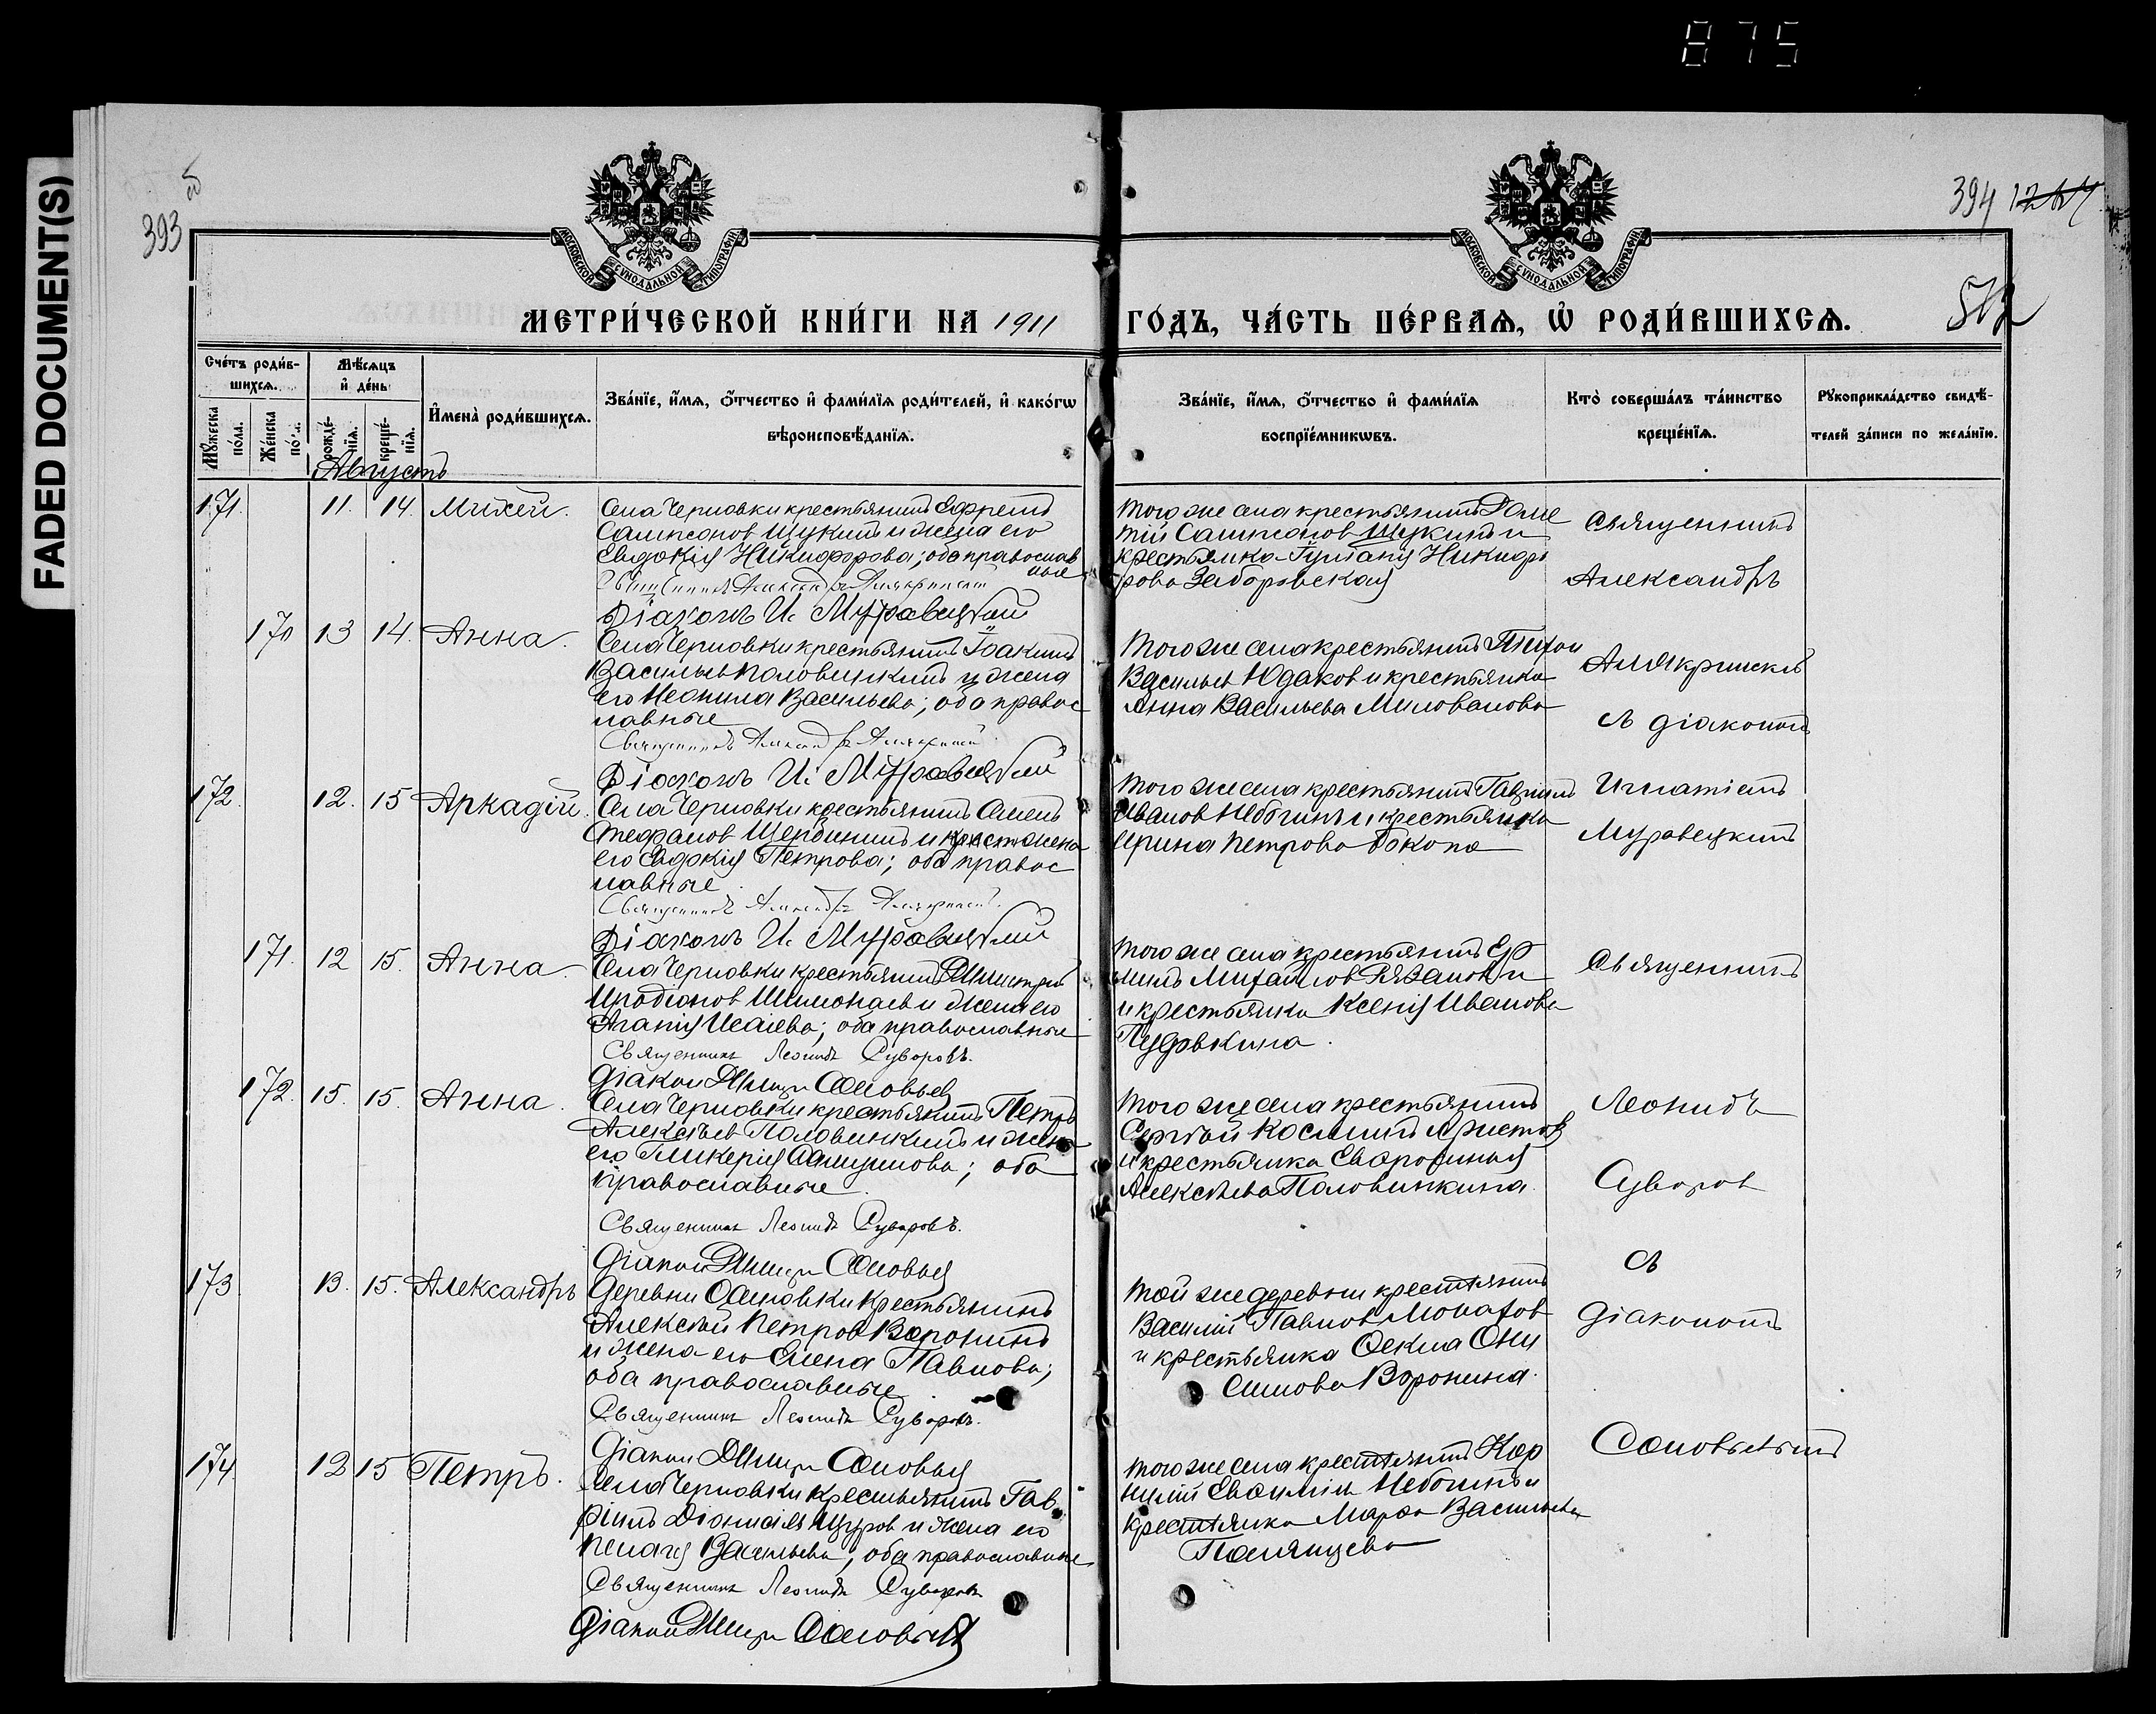 875
FADED DOCUMENT(S)
393 об
394
МОСКОВСКОЙ СѴНОДАЛЬНОЙ ТИПОГРАФІИ
МОСКОВСКОЙ СѴНОДАЛЬНОЙ ТИПОГРАФІИ
МЕТРИ́ЧЕСКОЙ КНИ́ГИ НА 1911 ГО́ДЪ, ЧА́СТЬ ПЕ́РВАѦ, Ѡ҆ РОДИ́ВШИХСѦ.
Сче́тъ роди́в-
шихсѧ.
Мꙋ́жеска по́ла.
Же́нска по́ла.
Мѣ́сѧцъ
и҆ де́нь
рожде́-
нїѧ.
креще́-
нїѧ.
И҆мена̀ роди́вшихсѧ.
Зва́нїе, и҆́мѧ, ѻ҆́тчество и҆ фами́лїѧ роди́телей, и҆ како́гѡ
вѣроисповѣ́данїѧ.
Зва́нїе, и҆́мѧ, ѻ҆́тчество и҆ фами́лїѧ
воспрїе́мникѡвъ.
Кто̀ соверша́лъ та́инство
креще́нїѧ.
Рꙋкоприкла́дство свидѣ́-
телей за́писи по жела́нїю.
Августъ
171. 11. 14. Михей.
Села Черновки крестьянинъ Ефремъ
Сампсонов Щукинъ и жена его
Евдокія Никифорова; оба православ
ные
Священникъ Александръ Алякринскій
Діаконъ И. Муравецкій
того же села крестьянинъ Доме
тій Сампсонов Щукинъ и
крестьянка Гуліанія Никифо
рова Заборовская
170 13 14. Анна.
Села Черновки крестьянинъ Іоакимъ
Васильев Половинкинъ и жена
его Неонила Васильева; оба правос
лавные
Священникъ Александръ Алякринскій
Діаконъ И. Муравецкій
того же села крестьянинъ Тихон
Васильев Юдаков и крестьянка
Анна Васильева Милованова
172. 12. 15 Аркадій.
Села Черновки крестьянинъ Семенъ
Стефанов Щербининъ и жена
его Евдокія Петрова; оба правос
лавные
Священникъ Александръ Алякринскій.
Діаконъ И. Муравецкій
того же села крестьянинъ Гавріилъ
Иванов Небогинъ и крестьянка
Ирина Петрова
Священникъ
Александръ
Алякринскій
съ діакономъ
Игнатіемъ
Муравецкимъ
171. 12 15. Анна.
Села Черновки крестьянинъ Димитрій
Иродіонов Шимонаев и жена его
Агапія Исаіева; оба православные
Священникъ Леонидъ Суворовъ.
Діакон Димитрій Соловьев
того же села крестьянинъ Ер
милъ Михайлов Рязанов и
и крестьянка Ксенія Иванова
Пудовкина.
172. 15. 15. Анна.
Села Черновки крестьянинъ Петръ
Алексѣев Половинкинъ и жена
его Гликерія; оба
православные.
Священникъ Леонидъ Суворовъ.
Діакон Димитрій Соловьев
того же села крестьянинъ
Сергѣй Косминъ
и крестьянка Евфросинья
Алексѣева Половинкина.
173 13. 15. Александръ
Деревни Осиповки крестьянинъ
Алексѣй Петров Воронинъ
и жена его Елена Павлова;
оба православные
Священникъ Леонидъ Суворовъ.
Діакон Димитрій Соловьев
той же деревни крестьянинъ
Василій Павлов Монахов
и крестьянка Ѳекла Они
симова Воронина.
174 12 15 Петръ.
Села Черновки крестьянинъ Гав
ріилъ Діонисіев Щуров и жена его
Пелагія Васильева; оба православные
Священникъ Леонидъ Суворовъ
Діакон Димитрій Соловьев
того же села крестьянинъ Кор
нилій Евѳиміев Небогинъ и
крестьянка Марѳа Васильева
Священникъ
Леонидъ
Суворов
съ
діакономъ
Соловьевымъ